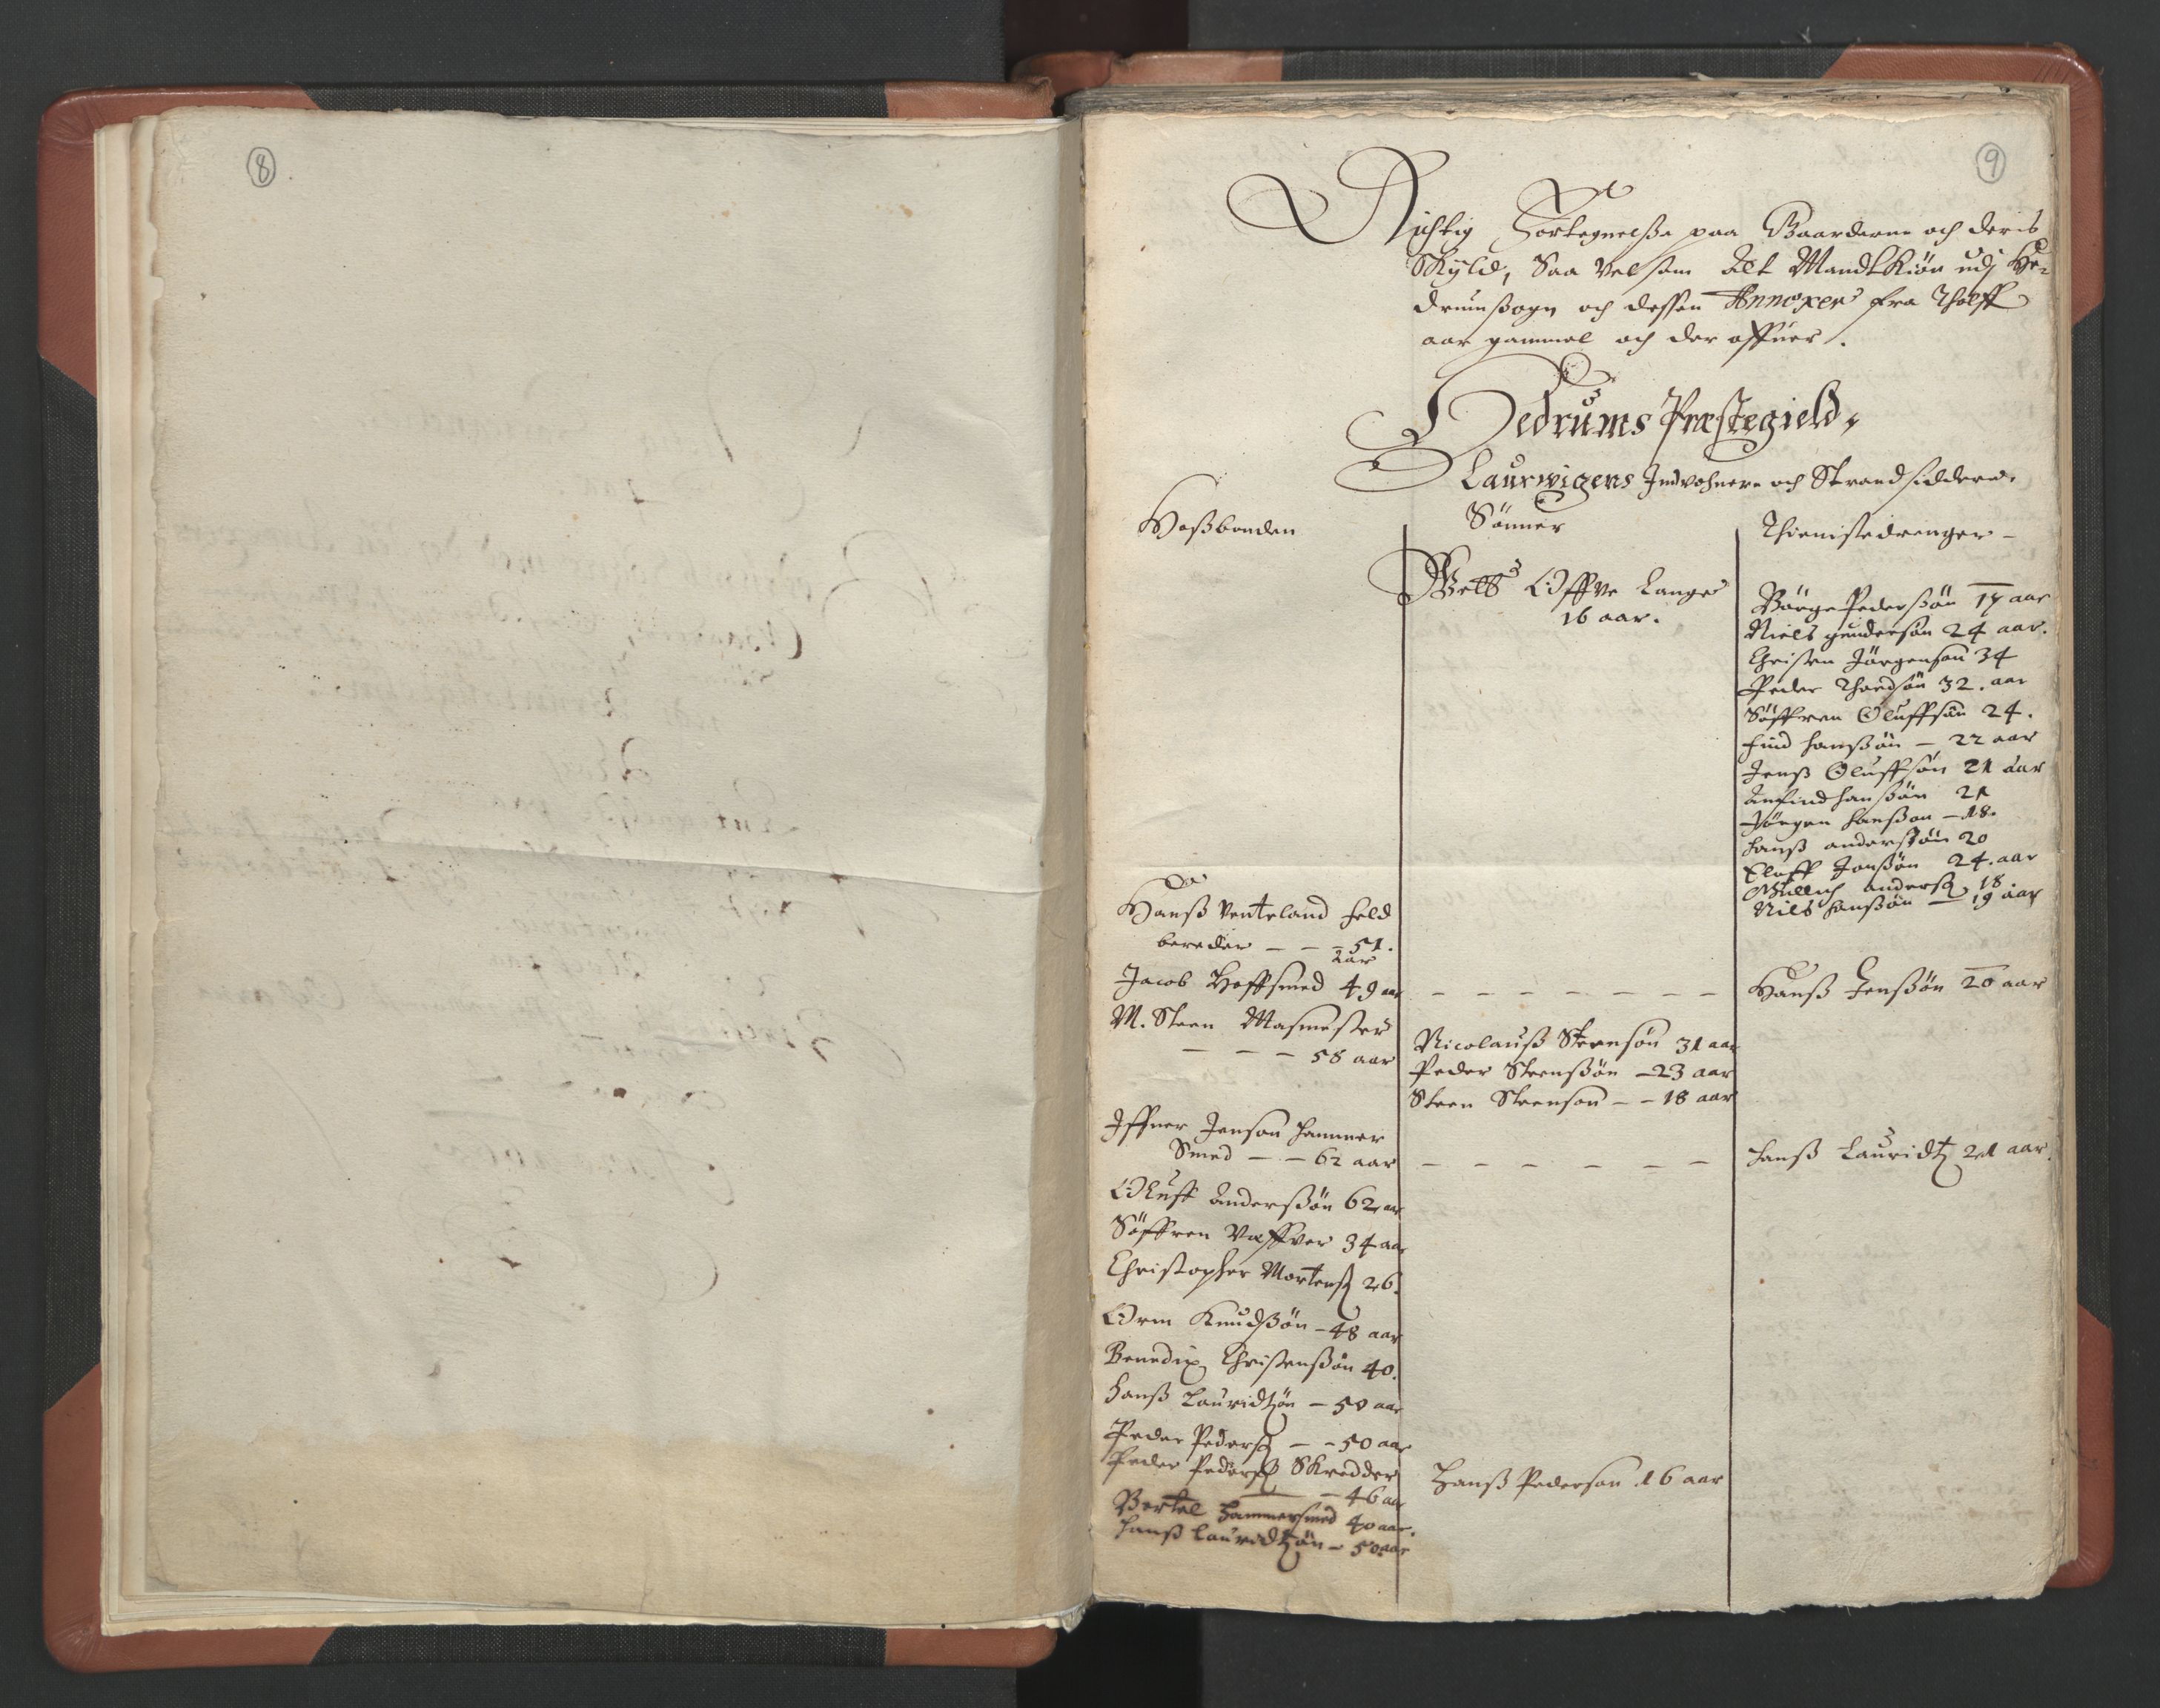 8
9
Richtig Fortegnelsße paa Gaarderne och deris
Skyld, Saa velsom Alt Mandkiøn udj He-
drumßogn och dessen Annexer fra Tholff
aar gammel och der offuer.
Hedrums Præstegield,
Laurwigens Indvohnere och Strandsiddere.
Hoßbonden
Sönner
Thienistedrenger
Velb Offve Lange
16 aar.
Börge Pederßön 17 aar
Niels gundersön 24 aar.
Christen Jörgensøn 34
Peder Thordsön 32. aar
Söffren Oluffsön 24.
find hanßön - 22 aar
Jenß Oluffsön 21 aar
Anfind hanßön 21
Jörgen hanßøn - 18.
hanß anderßön 20
Eloff Jonßön 24. aar
Gullich anderß 18
Nils hanßön - 19 aar
Hanß Venteland feld
bereder - - - 51.
aar
Jacob Hoffsmed 49 aar - - - - - - - Hanß Jenßön 20 aar
M. Steen Masmester
- - - 58 aar
Nicolauß Steensön 31 aar
Peder Steenßön - 23 aar
Steen Steensøn - - 18 aar
Iffuer Jensøn hammer
Smed - - 62 aar - - - - - - hanß Lauridtz 21 aar.
Oluff Anderßön 62 aar
Söffren Væffver 34 aar
Christopher Mortenß 26.
Orm Knudßön - 48 aar
Benedix Christenßön 40.
hanß Lauridtzön - 50 aar
Peder Pederß - - 50 aar
Peder Pederß Skredder
- 46 aar
Hanß Pedersøn 16 aar
Bertel Hammersmed 40 aar.
hanß Lauridtzön - 50 aar